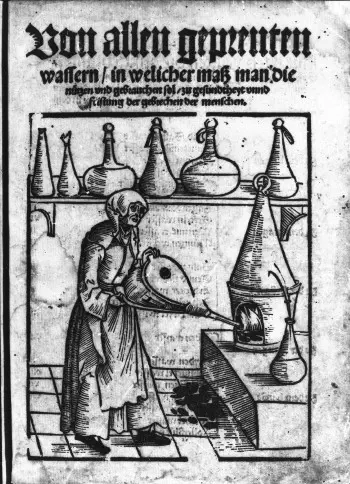 Von allen geprenten
wassern / in welicher maß man die
nützen vnd gebrauchen sol / zu gesundtheyt vnnd
fristung der gebrechen der menschen.